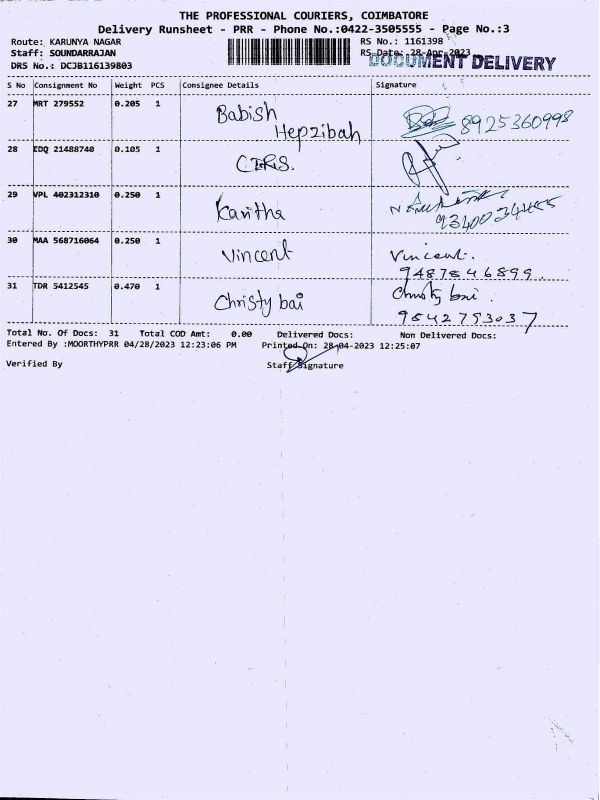 THE PROFESSIONAL COURIERS, COIMBATORE
Delivery Runsheet - PRR - Phone No.:0422-3505555 - Page No.:3
Route: KARUNYA NAGAR RS No.: 1161398
Staff: SOUNDARRAJAN RS Date: 28-Apr-2023
DOCUMENT DELIVERY
DRS No.: DCJB116139803
S No Consignment No Weight PCS Consignee Details Signature
27 MRT 279552 0.205 1 Babish Hepzibah 8925360998
28 EDQ 21488740 0.105 1
29 VPL 402312310 0.250 1 Kavitha
30 MAA 568716064 0.250 1 Vincent Vincent.
9487846899.
31 TDR 5412545 0.470 1 Christy bai Christy bai.
9842793037
Total No. Of Docs: 31 Total COD Amt: 0.00 Delivered Docs: Non Delivered Docs:
Entered By :MOORTHYPRR 04/28/2023 12:23:06 PM Printed On: 28-04-2023 12:25:07
Verified By Staff Signature